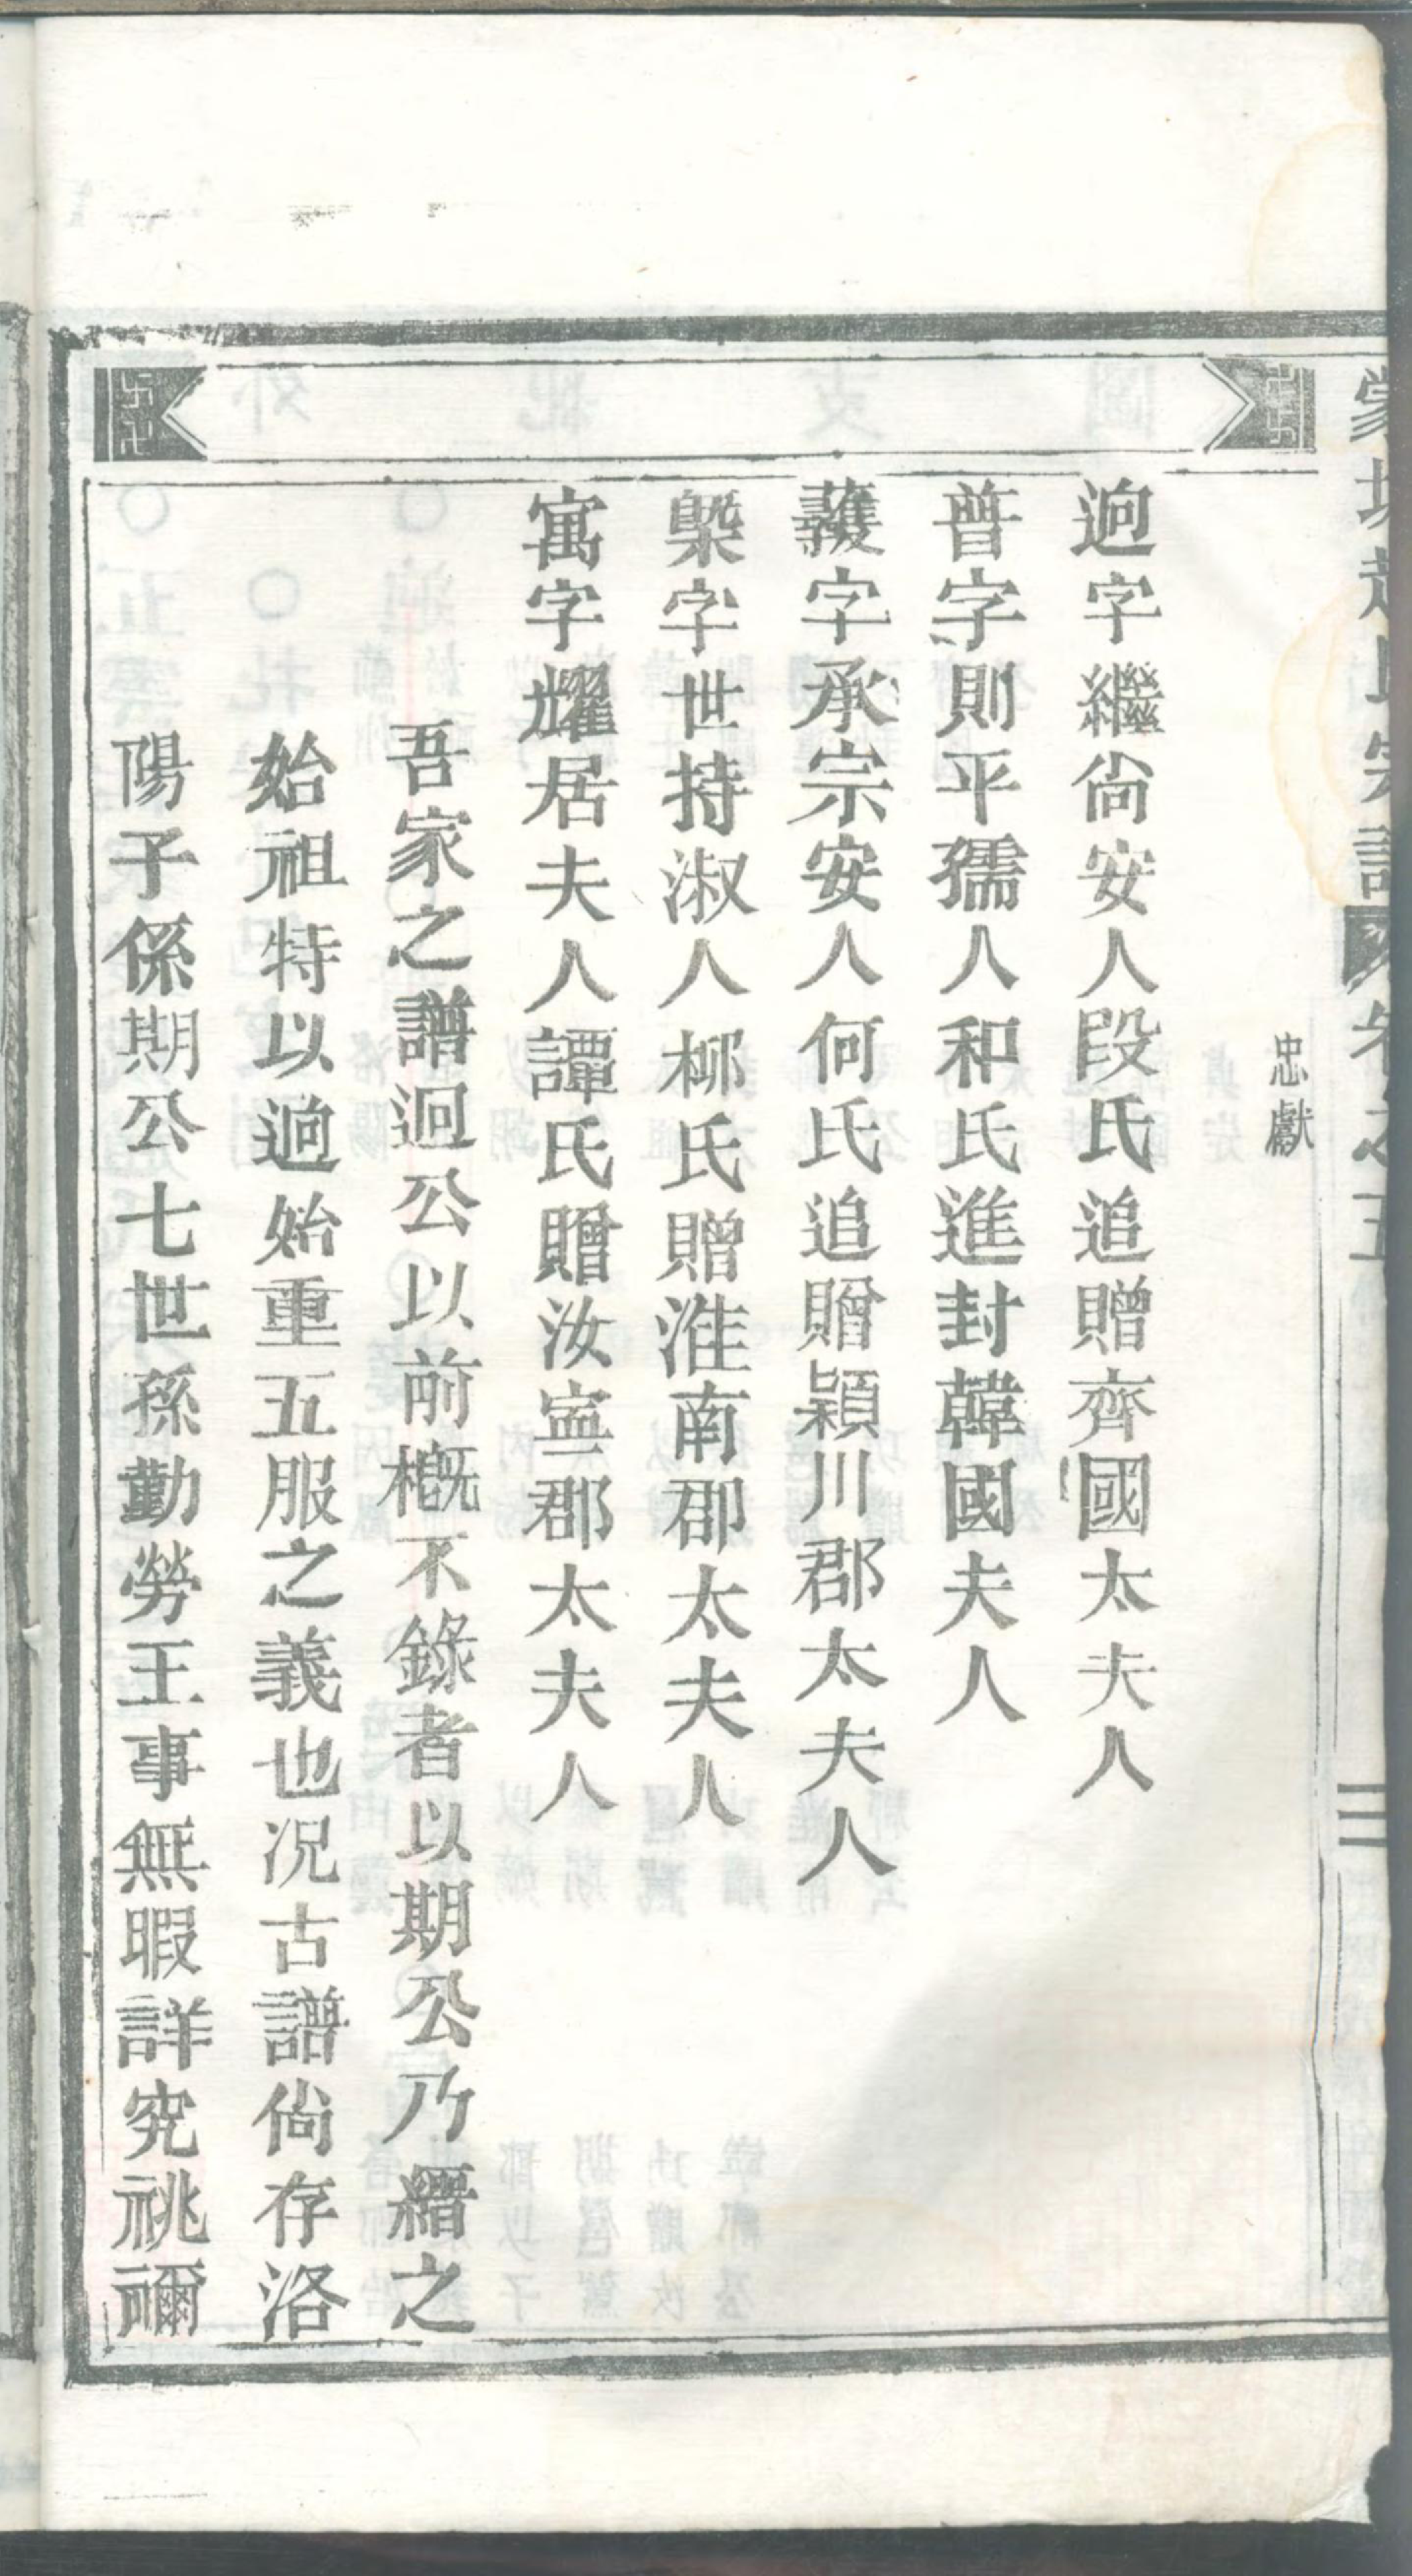 忠獻
逈字繼尙安人段氏追贈齊國太夫人
普字則平孺人和氏進封韓國夫人
字承宗安人何氏追贈潁川郡太夫人
槼字世持淑人栁氏贈淮南郡太夫人
寓字耀居夫人譚氏贈汝寧郡太夫人
吾家之譜迥公以前槪不錄者以期公乃纘之
始祖特以逈始重五服之義也况古譜尙存洛
陽子係期公七世孫勤勞王事無暇詳究祧禰